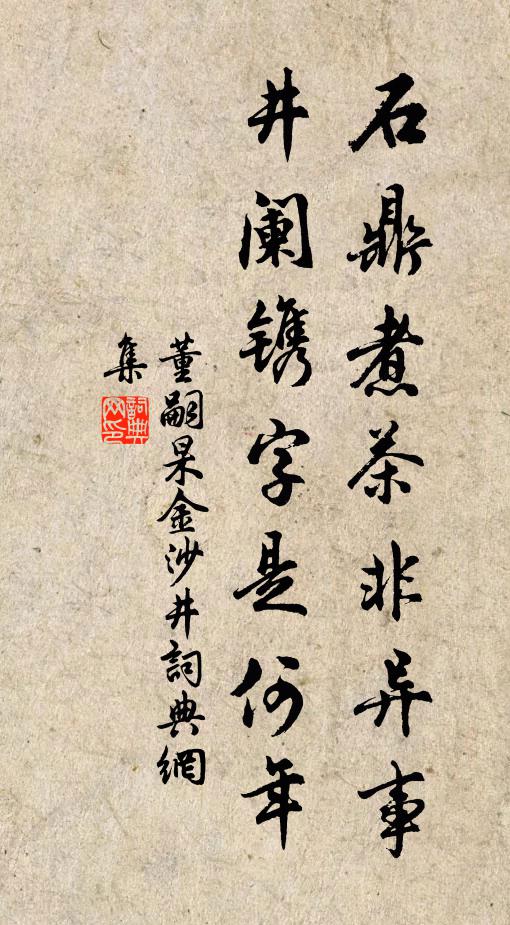 石鼎煮茶非异事
井阑镌字是何年
董嗣杲金沙井詞典網
集
詞典網印